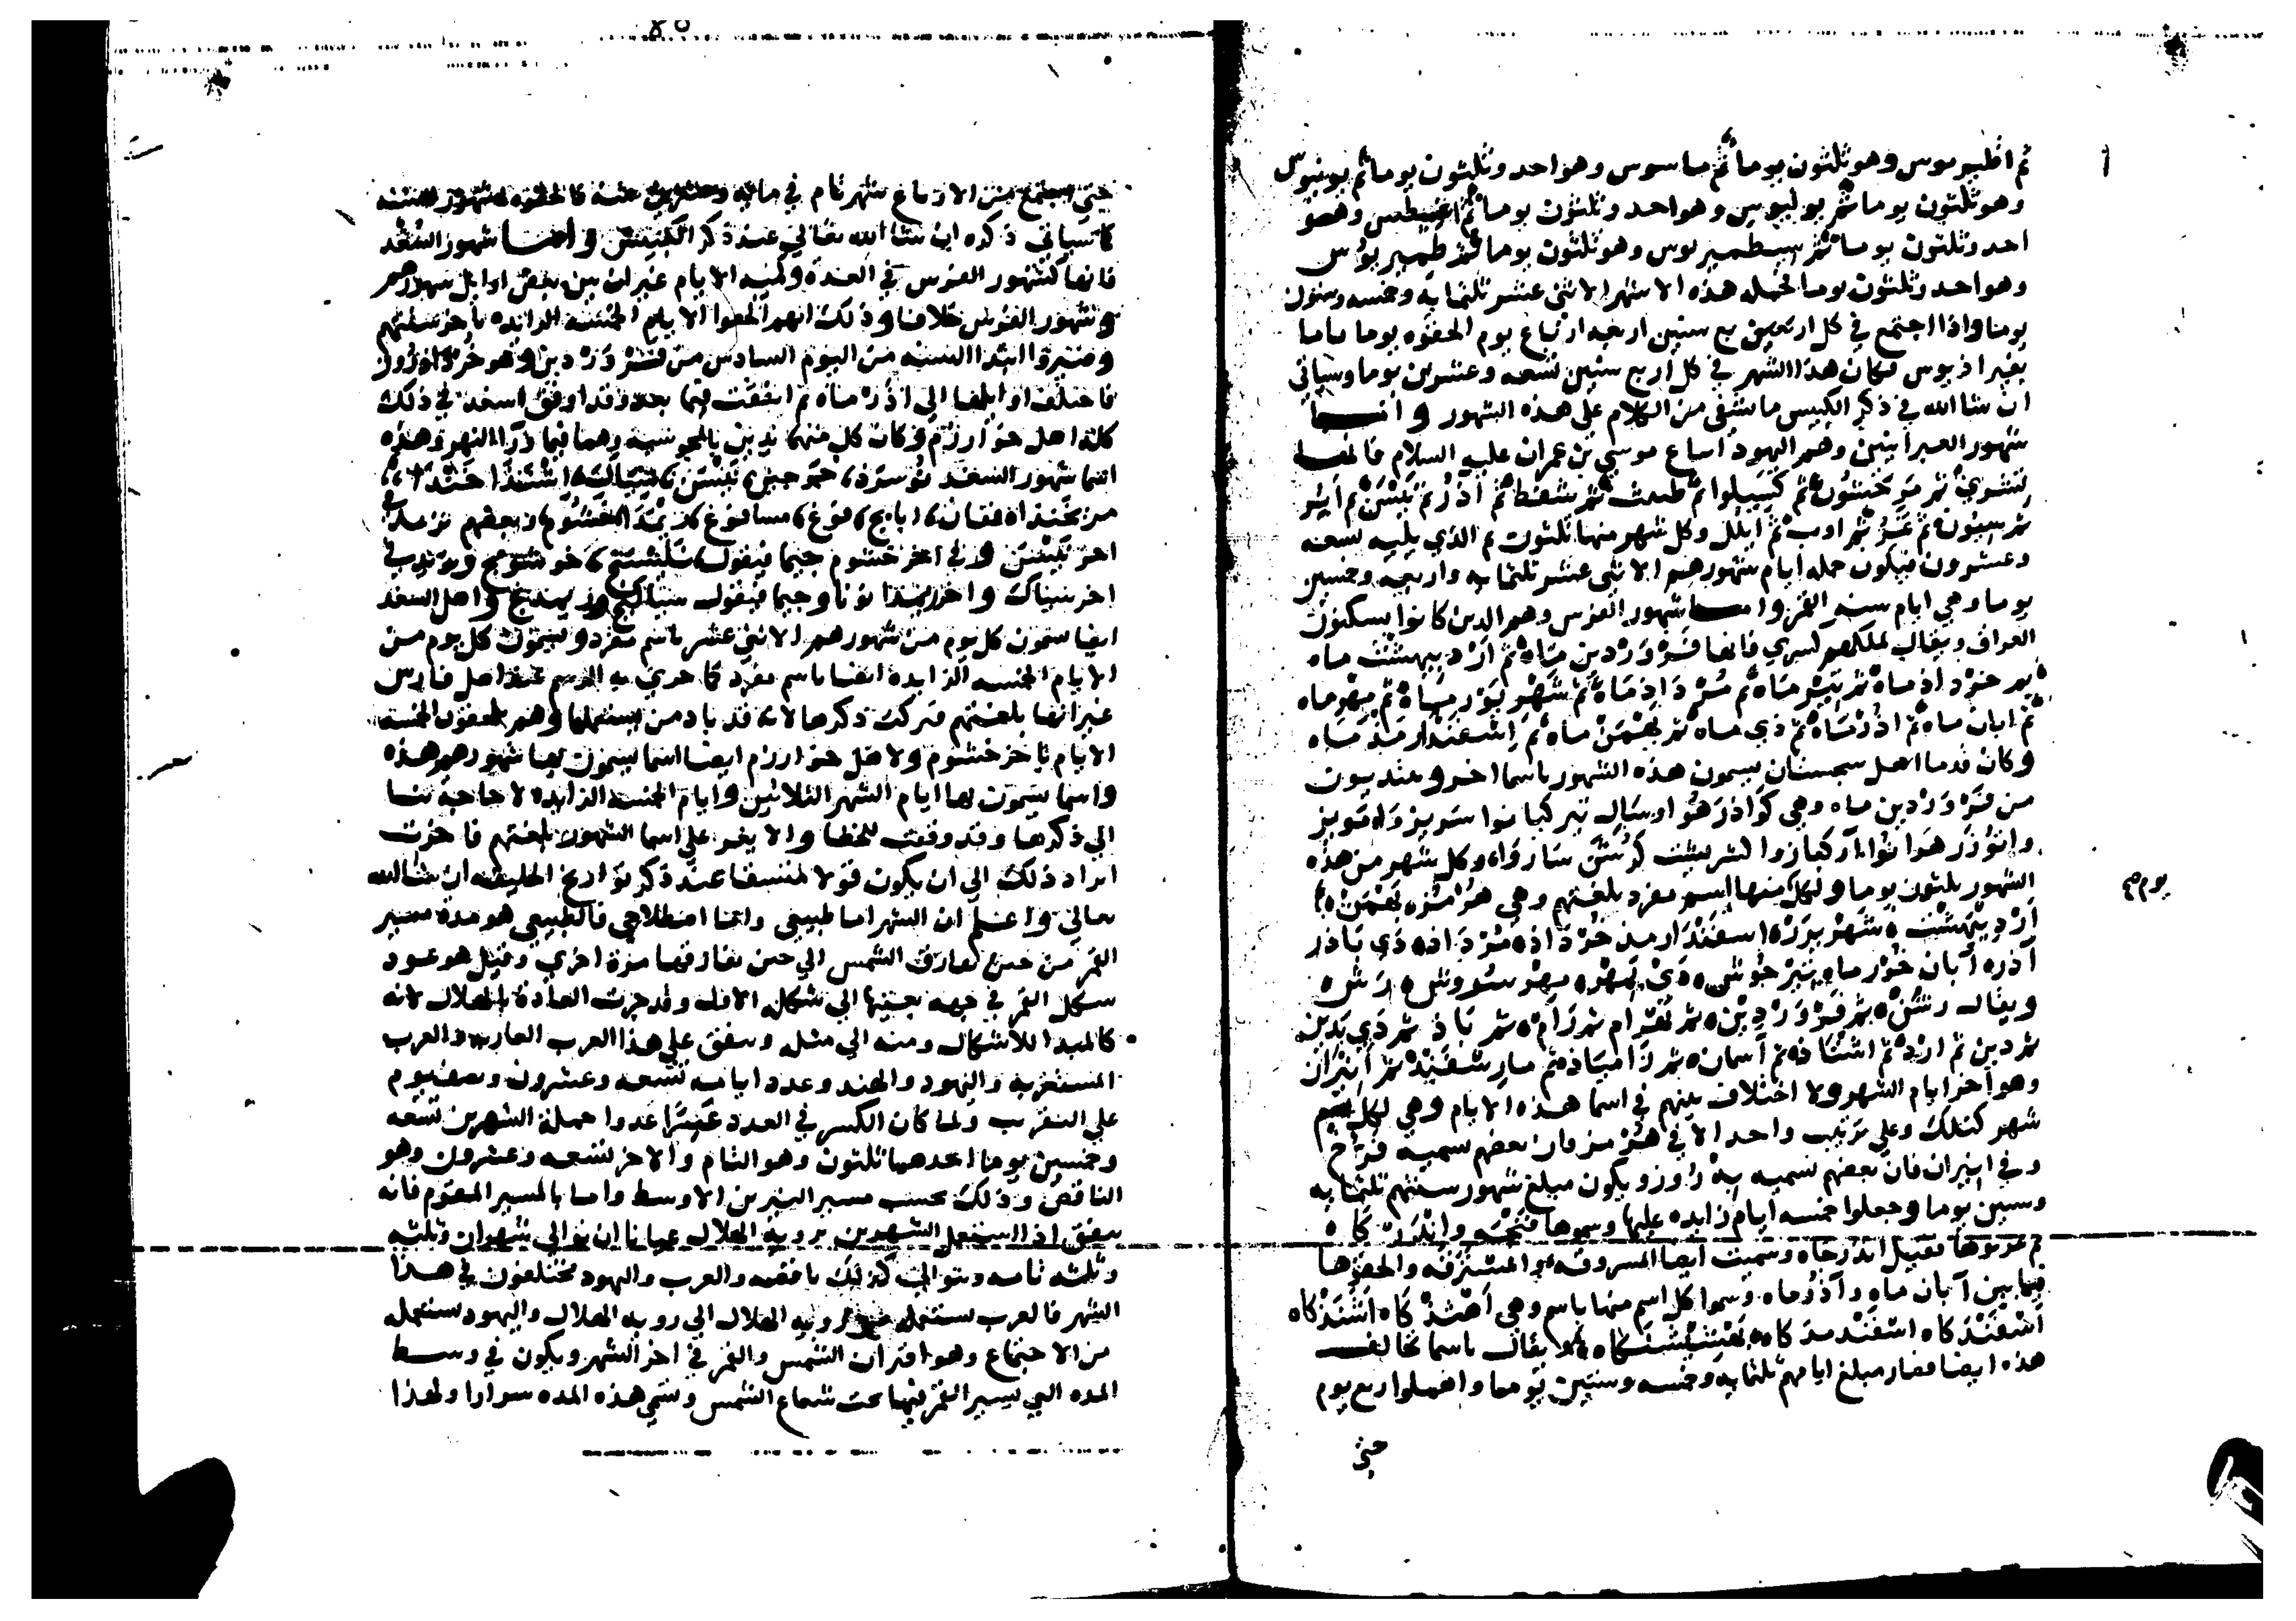 ثم افليريوس وهو ثلثون يوما ثم ماسوس وهو احد وثلثون يوما ثم يونيوس
وهو ثلثون يوما ثم يوليوس وهو احد وثلثون يوما ثم اغسطس وهو
احد وثلثون يوما ثم سبطمبريوس وهو ثلثون يوما ثم طمبريوس
وهو احد وثلثون يوما لجمله هذه الاشهر الاثنى عشر ثلثمايه وخمسه وستون
يوما واذا اجتمع في كل اربع سنين اربعه ارباع يوم الحقوه يوما
فكان هذا الشهر في كل اربع سنين تسعه وعشرين يوما وسياتي
ان شا الله في ذكر الكبيس ما شفى من الكلام على هذه الشهور واما
شهور العبرانيين وهم اليهود اتباع موسى بن عمران عليه السلام فانها
تشرى ثم مرخشون ثم كسيلوا ثم طيبث ثم شفط ثم اذر ثم نيسن ثم اير
ثم سيون ثم تمز ثم اوب ثم ايلل وكل شهر منها ثلثون ثم الذي يليه تسعه
وعشرون فيكون جمله ايام شهورهم الاثنى عشر ثلثمايه واربعه وخمسين
يوما وهي ايام سنه القمر واما شهور الفرس وهم الذين كانوا يسكنون
العراق ويقال لملكهم كسرى فانها فرورديِن ماه ثم ارديبهشت ماه
ثم خرداذ ماه ثم تير ماه ثم مرداذ ماه ثم شهريور ماه ثم مهر ماه
ثم ابان ماه ثم اذر ماه ثم ذي ماه ثم بهمن ماه ثم اشفندارمذ ماه
وكان قدما اهل سجستان يسمون هذه الشهور باسما اخر ويبتديون
من فروردين ماه وهي كواذ رهو اوسال تيركيانوا سريزوا مريز
الشهور ثلثون يوما ولكل منها اسم مفرد بلغتهم وهي هرمز بهمن
يوم صح
ارديبهشت شهريرر اسفندارمذ خرداذ مرداذ دي باذر
آذر آبان خور ماه تير جوش دي بمهر مهر سروش رش
ويقال رشن ثم فروردين ثم بهرام ثم رام ثم باذ ثم دي بدين
ثم دين ثم ارد ثم اشتاذ ثم آسمان ثم زامياذ ثم مارشفند ثم انيران
وهو اخر ايام الشهر ولا اختلاف بينهم في اسما هذه الايام وهي لكل
شهر كذلك وعلى ترتيب واحد الا في هرمز فان بعضهم سميه فرخ
وفي انيران فان بعضهم سميه به روز ويكون مبلغ شهور سنتهم ثلثمايه
وستين يوما وجعلوا خمسه ايام زايده عليها وسموها فنجه وانذر كاه
ثم عربوها فقيل اندرجاه وسميت ايضا المسروقه والمسترقه والحقوها
فيما بين آبان ماه وآذر ماه وسموا كل اسم منها باسم وهي اهنذ كاه اشنذ كاه
اشفند كاه اشفندمذ كاه بهشتشت كاه ولا يقال باسما تخالف
هذه ايضا فصار مبلغ ايامهم ثلثمايه وخمسه وستين يوما واهملوا ربع يوم
حتى
حتى اجتمع من الارباع شهر تام في مايه وعشرين سنه فالحقوه بشهور السنه
كما سياتي ذكره ان شا الله تعالى عند ذكر الكبيس واما شهور السغد
فانها كشهور الفرس في العده وكميه الايام غير ان بين بعض اوايل شهورهم
وشهور الفرس خلافا وذلك انهم الحقوا الايام الخمسه الزايده باخر سنتهم
وصيروا ابتدا السنه من اليوم السادس من فروردين وهو خرداذ روز
فاختلف اوايلها الى اذر ماه ثم اتفقت فيما بعد وقد اوفق السغد في ذلك
كله اهل خوارزم وكان كل منهما يدين بالمجوسيه وهما فيما ورا النهر وهذه
اسما شهور السغد نوسرد، جرجن، نيسن، بساك، اشنذا خندا
مزيخندا فغان، اباخ، فوغ، مسافوغ، زيمدا، خشوم، وبعضهم يزيد في
اخر نيسن وفي اخر خشوم جيما فيقول نيسنج، خوشومج ويزيد في
اخر بساك واخر زيمدا نونا وجيما فيقول بساكنج وزيمدنج واهل السغد
ايضا يسمون كل يوم من شهورهم الاثنى عشر باسم مفرد ويسمون كل يوم من
الايام الخمسه الزايده ايضا باسم مفرد كما جرى به الرسم عند اهل فارس
غير انها بلغتهم فتركت ذكرها لانه قد باد من يستعملها وهم يلحقون الخمسه
الايام باخر خشوم ولاهل خوارزم ايضا اسما يسمون بها شهورهم هذه
واسما يسمون بها ايام الشهر الثلاثين وايام الخمسه الزايده لا حاجه بنا
الى ذكرها وقد وقعت للخطا والا يعبر على اسما الشهور بلغتهم فاخرت
ايراد ذلك الى ان يكون قولا منسقا عند ذكر تواريخ الخليقه ان شا الله
تعالى واعلم ان الشهر اما طبيعي واما اصطلاحي فالطبيعي هو مدة مسير
القمر من حين يفارق الشمس الى حين يفارقها مرة اخرى وقيل هو عود
شكل القمر في جهه بعينها الى شكله الاول وقد جرت العادة بالهلال لانه
كالمبدا للاشكال ومنه الى مثله ويتفق على هذا العرب العاربه والعرب
المستعربه واليهود والهند وعدد ايامه تسعه وعشرون ونصف يوم
على التقريب ولما كان الكسر في العدد عَسِرًا عدوا جملة الشهرين تسعه
وخمسين يوما احدهما ثلثون وهو التام والاخر تسعه وعشرون وهو
الناقص وذلك بحسب مسير النيرين الاوسط واما بالمسير المقوم فانه
يتفق اذا استعمل الشهرين بروية الهلال عيانا ان توالى شهران وثلثه
وثلثه تامه وتتوالى كذلك ناقصه والعرب واليهود مختلفون في هذا
الشهر فالعرب تستعمله من رويه الهلال الى رويه الهلال واليهود تستعمله
من الاجتماع وهو اقتران الشمس والقمر في اخر الشهر ويكون في وسط
المده التي يسير القمر فيها تحت شعاع الشمس وسمي هذه المده سرارا ولهذا